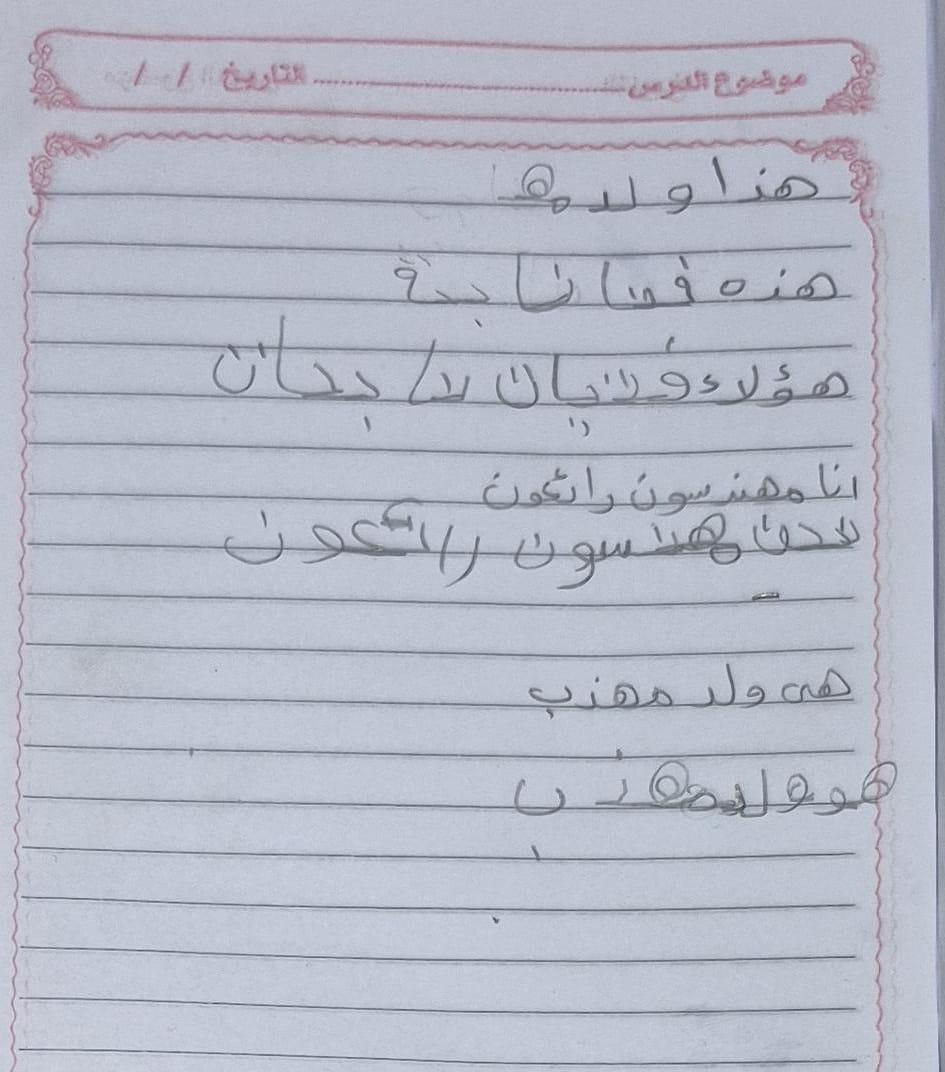 موضوع الدرس التاريخ / /
هذا ولد مه
هذه فتا نا بية
هؤلاء فتيان نا بحان
انا مهندسون رائعون
نحن مهندسون رائعون
هي ولد مهذب
هو ولد مهذ ب